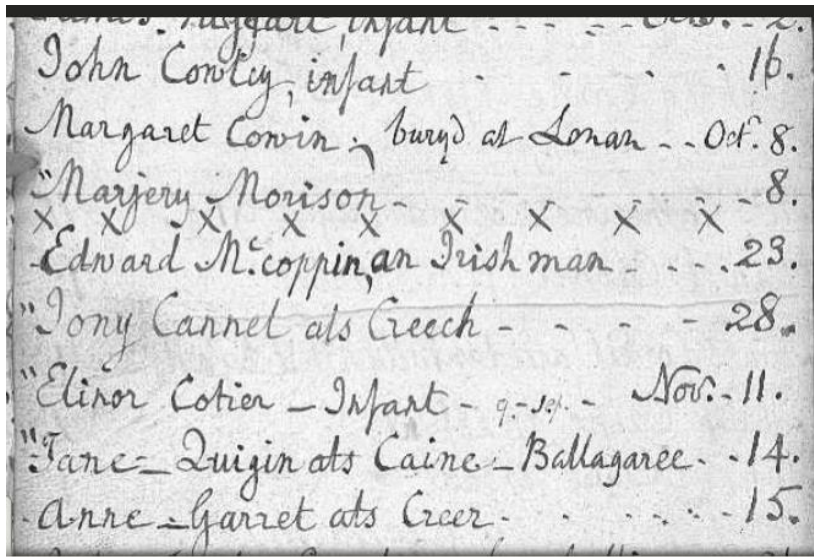 infant - - - - Octo. - 2.
John Cowley, infant - - - - 16.
Margaret Cowin, buryd at Lonan - - Oct. 8.
"Marjery Morison - - - - - - 8.
X X X X X X X X X
Edward Mccoppin, an Irish man - - - - 23.
"Jony Cannel als Creech - - - - 28.
"Elinor Cotier - Infant - - Nov. - 11.
"Jane - Quigin als Caine - Ballagaree - - 14.
Anne - Garret als Creer - - - - - 15.